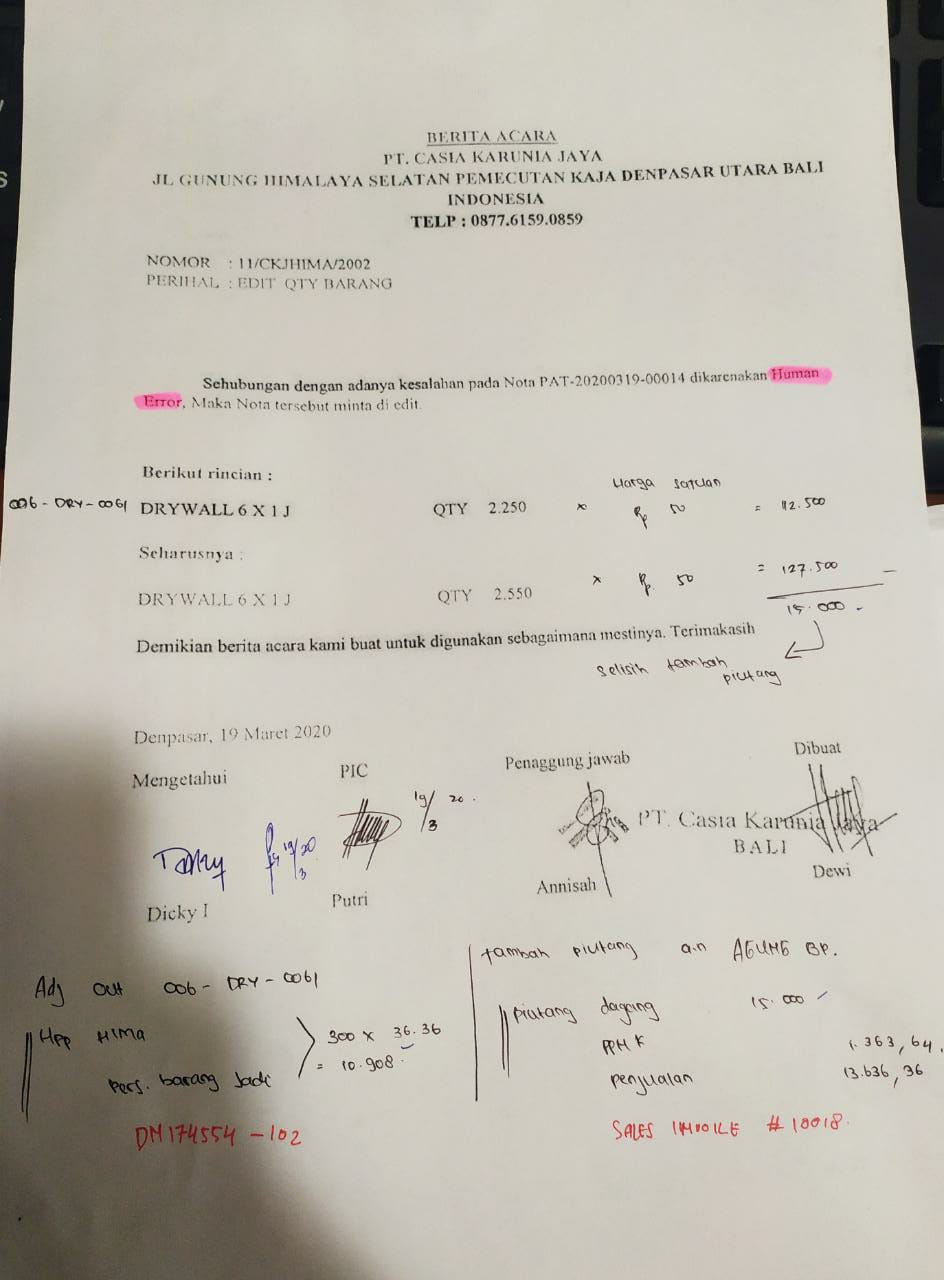 BERITA ACARA
PT. CASIA KARUNIA JAYA
JL GUNUNG HIMALAYA SELATAN PEMECUTAN KAJA DENPASAR UTARA BALI
INDONESIA
TELP : 0877.6159.0859
NOMOR : 11/CKJHIMA/2002
PERIHAL : EDIT QTY BARANG
Sehubungan dengan adanya kesalahan pada Nota PAT-20200319-00014 dikarenakan Human
Error, Maka Nota tersebut minta di edit.
Berikut rincian :
Harga satuan
006 - DRY - 0061 DRYWALL 6 X 1 J QTY 2.250 x Rp 50 = 112.500
Seharusnya :
DRYWALL 6 X 1 J QTY 2.550 x Rp. 50 = 127.500 -
15.000 -
Demikian berita acara kami buat untuk digunakan sebagaimana mestinya. Terimakasih
Selisih tambah
piutang
Denpasar, 19 Maret 2020
Mengetahui PIC Penaggung jawab Dibuat
19/3 20.
19/3 20
PT. Casia Karunia Jaya
BALI
Dicky I Putri Annisah Dewi
Adj out 006 - DRY - 0061
Hpp HIMA
Pers. barang Jadi
300 x 36.36
= 10.908
DM174554 - 102
tambah piutang a.n AGUNG BP.
piutang dagang 15.000
PPN K 1.363,64.
penjualan 13.636,36
SALES INVOICE # 10018.